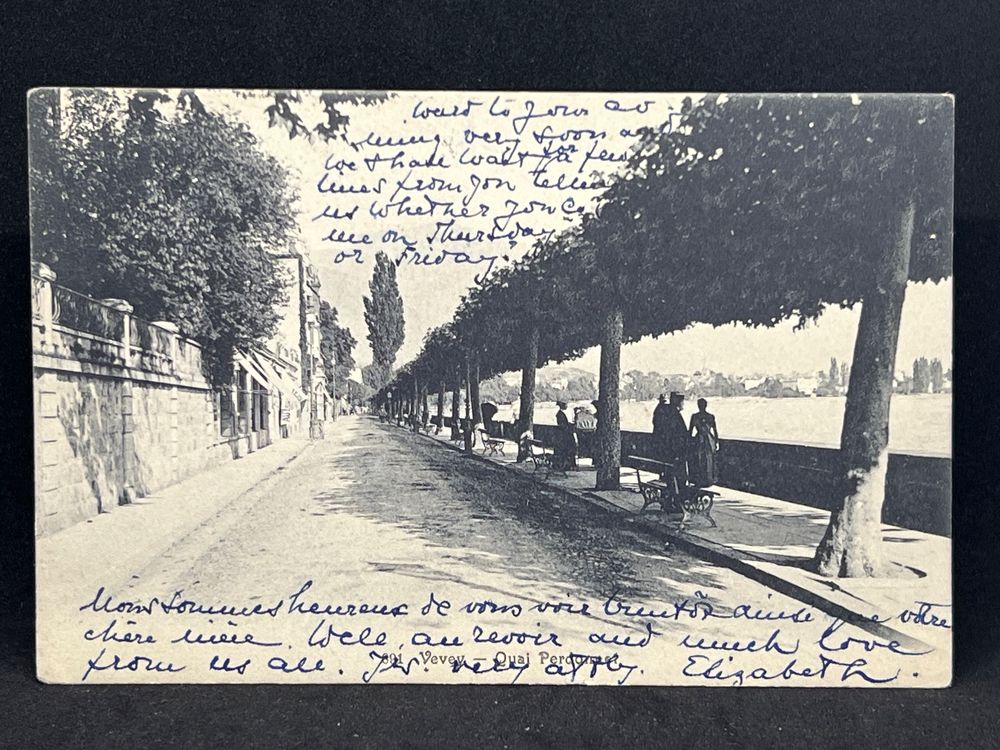 ward to your co
ming very soon a
We shall wait for a few
lines from you tellin
us whether you co
me on Thursday
or Friday.
Nous sommes heureux de vous voir bientôt ainsi que votre
chère mère. Well, au revoir and much love
from us all. Yrs. very affly. Elizabeth.
691 Vevey - Quai Perdonnet